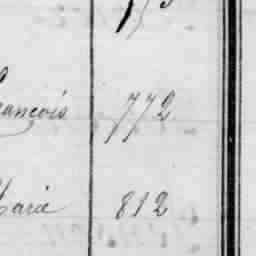 François 772
Marie 812